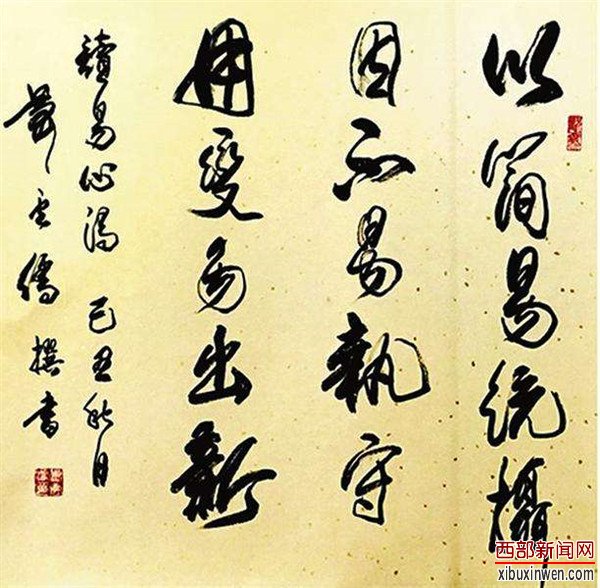 以簡易統攝
因不易執守
用變易出新
讀易心得 己丑秋月
蕭云儒撰書
西部新闻网
xibuxinwen.com